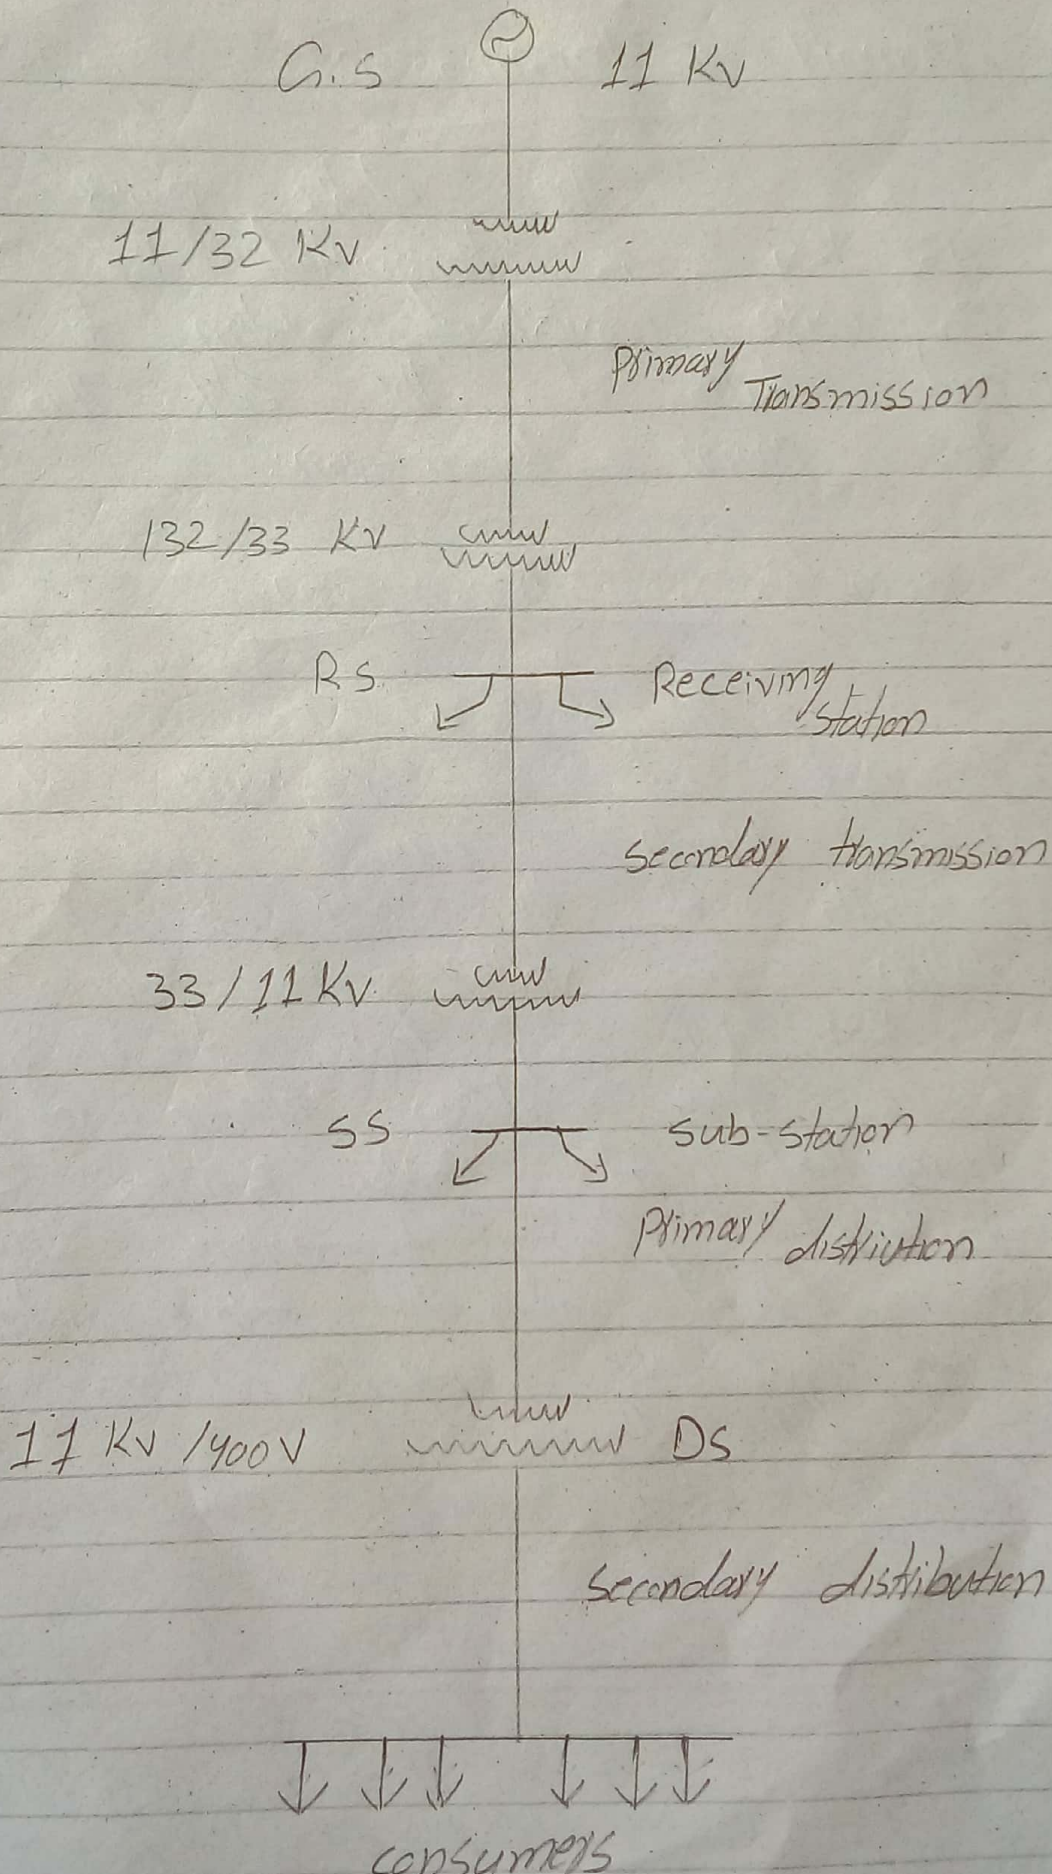 G.S 11 Kv
11/32 Kv
Primary
Transmission
132/33 Kv
RS Receiving
station
secondary transmission
33/11 Kv
SS Sub-station
Primary distriution
11 Kv /400V DS
secondary distribution
consumers